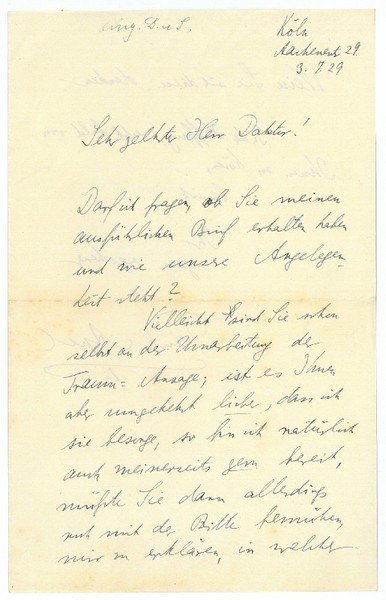 Köln
Aachenerstr. 29.
3. 7. 29
Sehr geehrter Herr Doktor!
Darf ich fragen, ob Sie meinen
ausführlichen Brief erhalten haben
und wie unsere Angelegen-
heit steht?
Vielleicht sind Sie schon
selbst an der Umarbeitung der
Traum-Ansage; ist es Ihnen
aber umgekehrt lieber, dass ich
sie besorge, so bin ich natürlich
auch meinerseits gern bereit,
müßte Sie dann allerdings
noch mit der Bitte bemühen,
mir zu erklären, in welcher